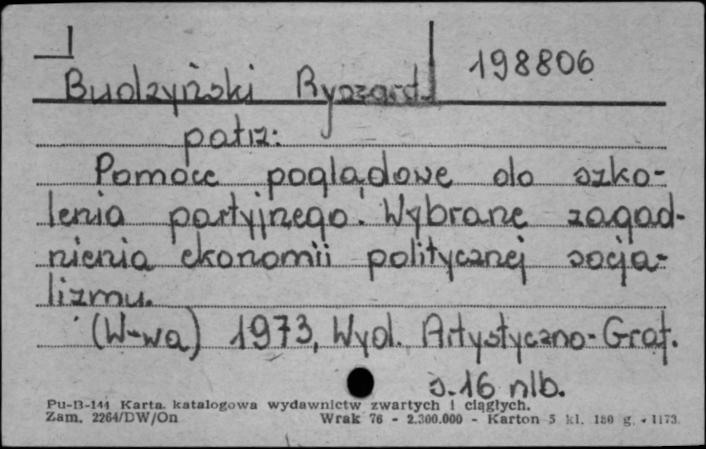 198806
Budzyński Ryszard
patrz:
Pomoce poglądowe do szko-
lenia partyjnego. Wybrane zagad-
nienia ekonomii politycznej socja-
lizmu.
(W-wa) 1973, Wyd. Artystyczno-Graf.
s. 16 nlb.
Pu-B-144 Karta katalogowa wydawnictw zwartych i ciągłych.
Zam. 2264/DW/On Wrak 76 - 2.300.000 - Karton 5 kl. 180 g. - 1173